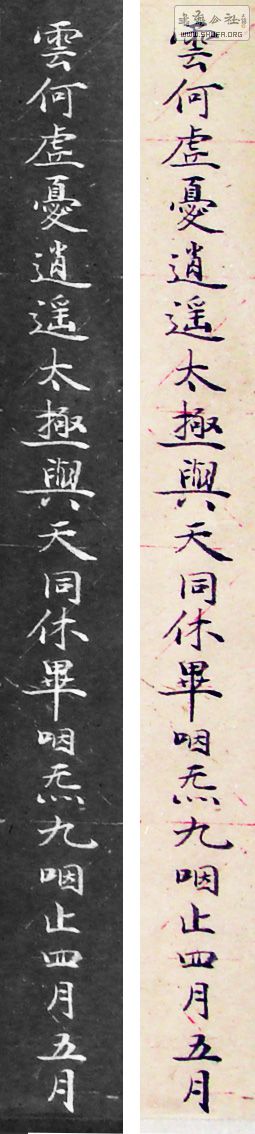 雲何虛憂逍遥太極與天同休畢咽炁九咽止四月五月
雲何虛憂逍遥太極與天同休畢咽炁九咽止四月五月
書法公社
WWW.SHUFA.ORG